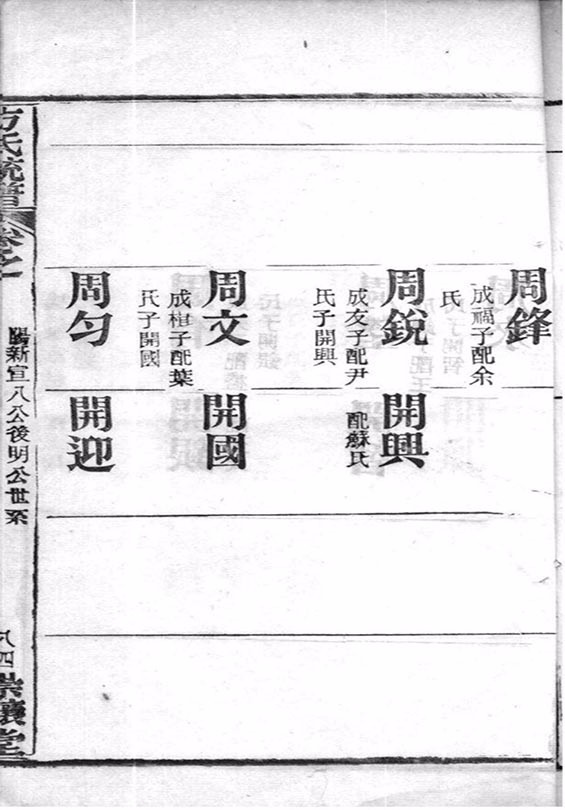 周鋒
成福子配余
氏
周銳
成友子配尹
氏子開興
開興
配蘇氏
周文
成楦子配葉
氏子開國
開國
周勻
開迎
方氏統譜
卷之
陽新宣八公後明公世系
八四
崇讓堂